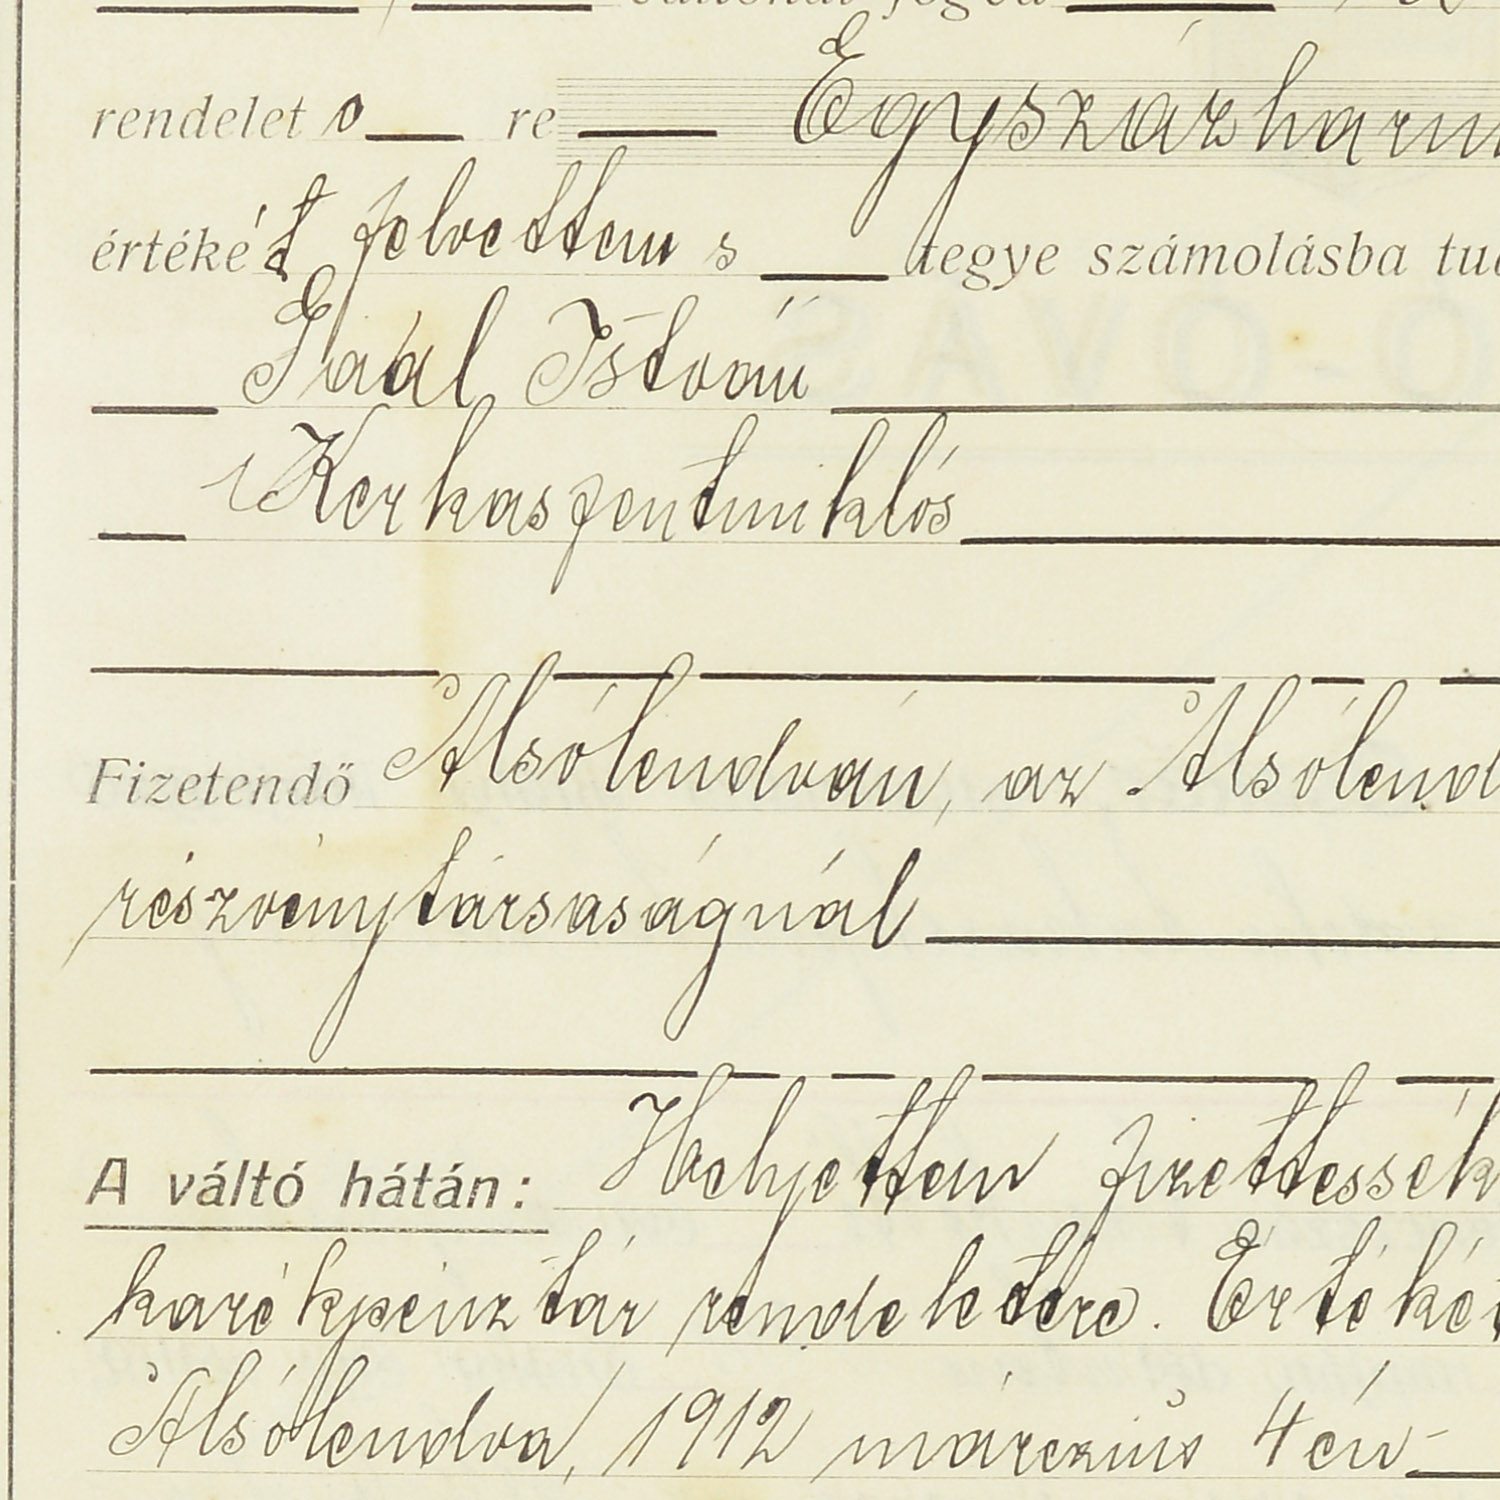 rendelet o re Egyszázharm
értékét felvettem s tegye számolásba tud
Gaál István
Kerkaszentmiklós
Fizetendő Alsólendván, az Alsólend
részvénytársaságnál
A váltó hátán: Helyettem fizettessék
karékpénztár rendeletére. Értékét
Alsólendva, 1912 márczius 4én